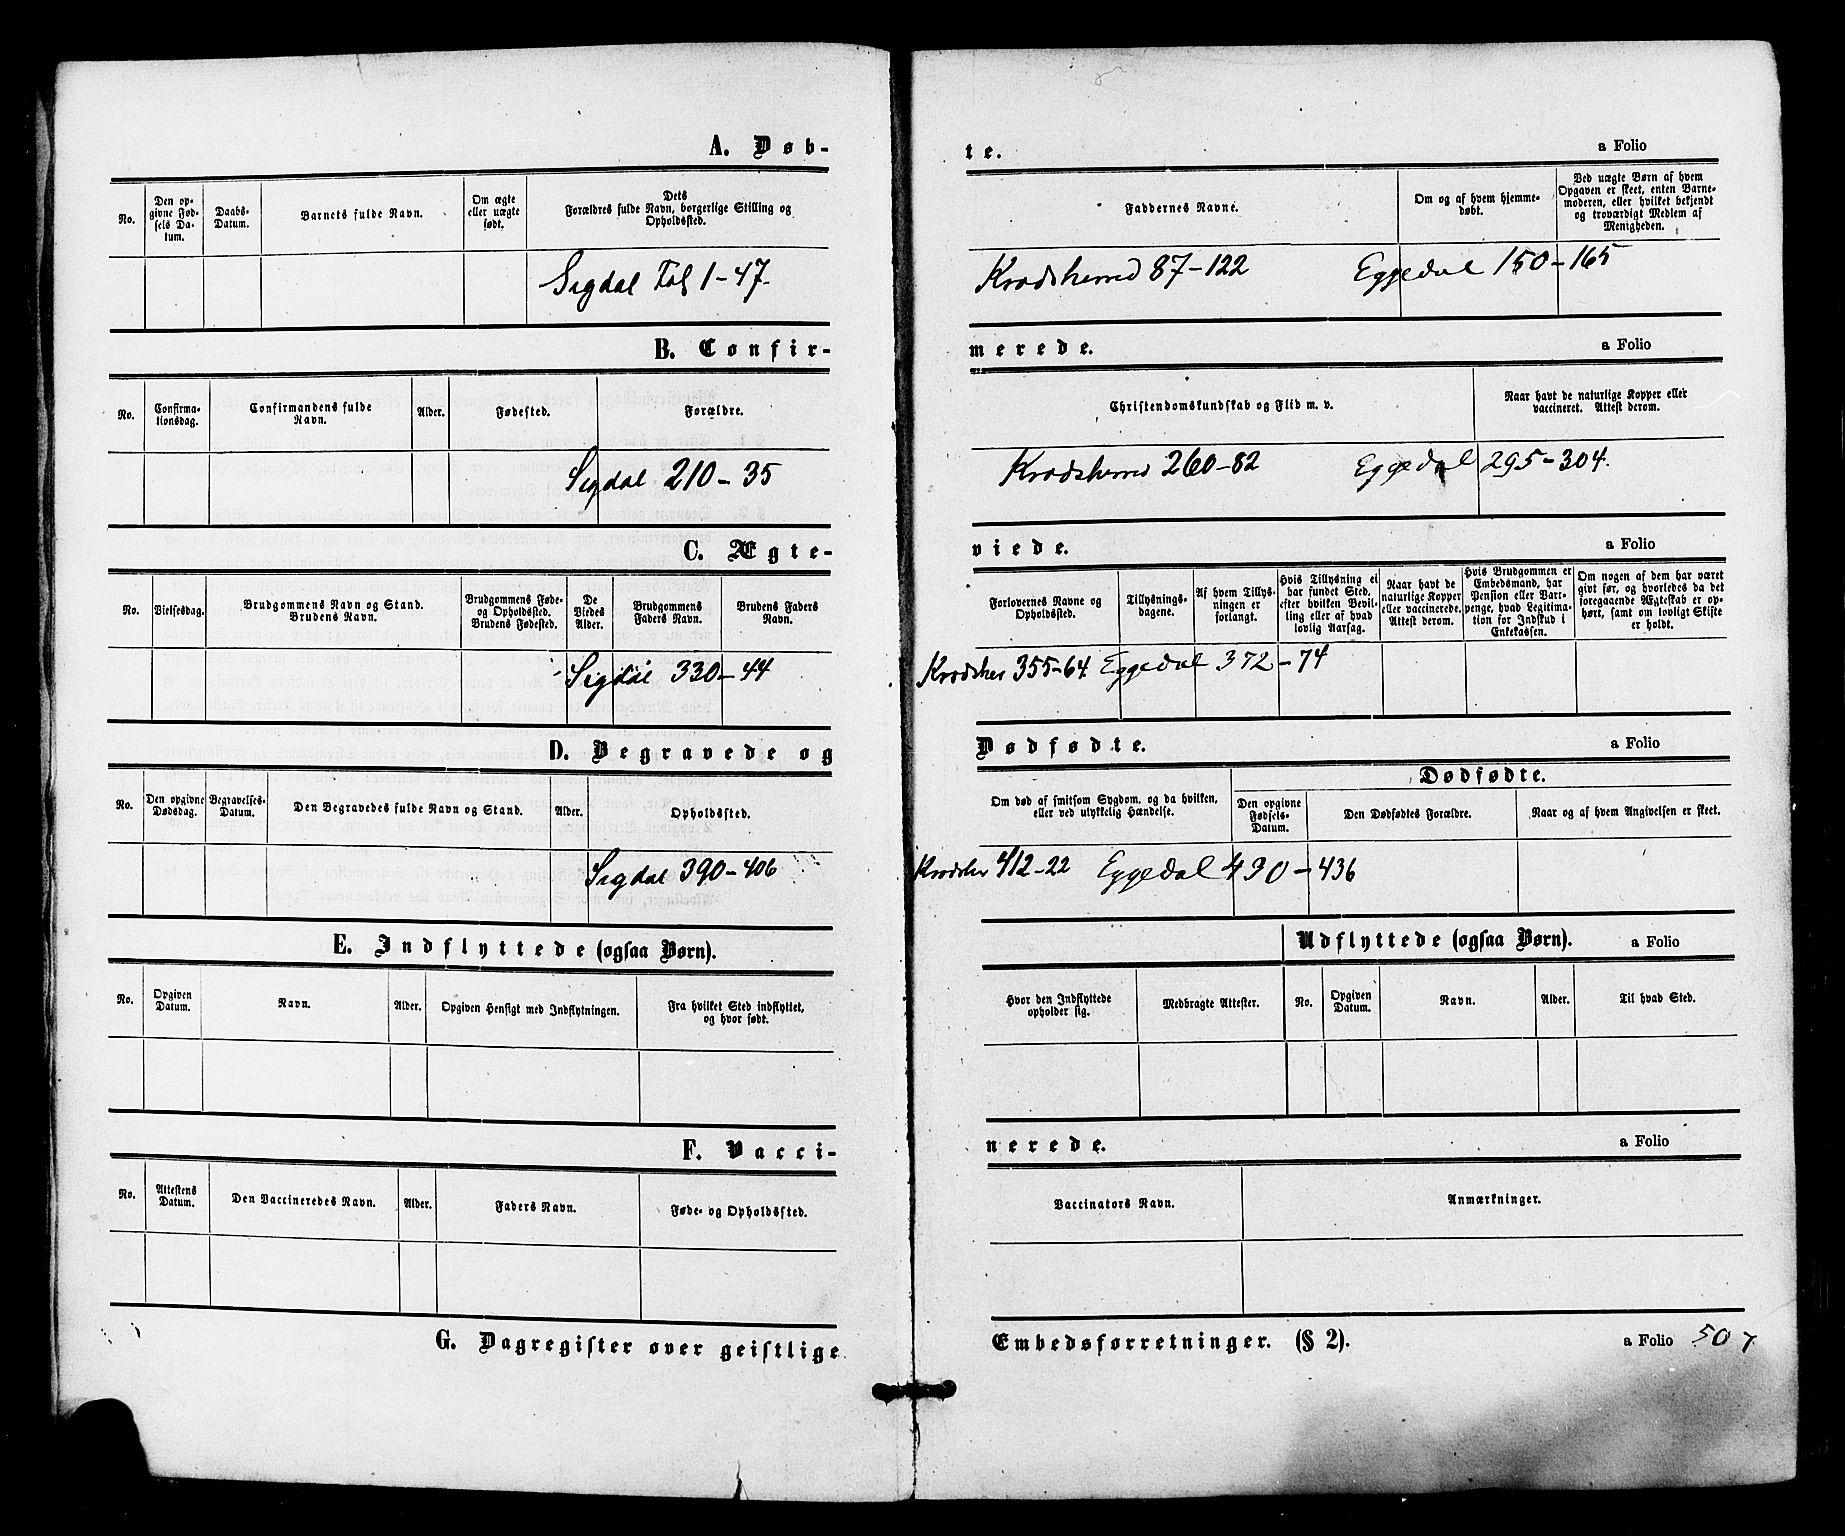 A. Døb-
No.
Den op-
givne Fød-
sels Da-
tum.
Daabs-
Datum.
Barnets fulde Navn.
Om ægte
eller uægte
født.
Dets
Forældres fulde Navn, borgerlige Stilling og
Opholdssted.
Sigdal Fol 1-47.
B. Confir-
No.
Confirma-
tionsdag.
Confirmandens fulde
Navn.
Alder.
Fødested.
Forældre.
Sigdal 210-35
C. Ægte-
No.
Vielsesdag.
Brudgommens Navn og Stand.
Brudens Navn.
Brudgommens Føde-
og Opholdssted.
Brudens Fødested.
De
Viedes
Alder.
Brudgommens
Faders Navn.
Brudens Faders
Navn.
Sigdal 330-44
D. Begravede og
No.
Den opgivne
Dødsdag.
Begravelses-
Datum.
Den Begravedes fulde Navn og Stand.
Alder.
Opholdssted.
Sigdal 390-406
E. Indflyttede (ogsaa Børn).
No.
Opgiven
Datum.
Navn.
Alder.
Opgiven Hensigt med Indflytningen.
Fra hvilket Sted indflyttet,
og hvor født.
F. Vacci-
No.
Attestens
Datum.
Den Vaccineredes Navn.
Alder.
Faders Navn.
Føde- og Opholdssted.
G. Dagregister over geistlige
te.
a Folio
Faddernes Navne.
Om og af hvem hjemme-
døbt.
Ved uægte Børn af hvem
Opgaven er skeet, enten Barne-
moderen, eller hvilket bekjendt
og troværdigt Medlem af
Menigheden.
Krødsherred 87-122 Eggedal 150-165
merede.
a Folio
Christendomskundskab og Flid m. v.
Naar havt de naturlige Kopper eller
vaccineret. Attest derom.
Krødsherred 260-82 Eggedal 295-304.
viede.
a Folio
Forlovernes Navne og
Opholdssted.
Tillysnings-
dagene.
Af hvem Tillys-
ningen er
forlangt.
Hvis Tillysning ei
har fundet Sted,
efter hvilken Bevil-
ling eller af hvad
lovlig Aarsag.
Naar havt de
naturlige Kopper
eller vaccinerede.
Attest derom.
Hvis Brudgommen er
Embedsmand, har
Pension eller Vart-
penge, hvad Legitima-
tion for Indskud i
Enkekassen.
Om nogen af dem har været
gift før, og hvorledes da det
foregaaende Ægteskab er op-
hørt, samt om lovligt Skifte
er holdt.
Krødsher 355-64 Eggedal 372-74
Dødfødte.
a Folio
Om død af smitsom Sygdom, og da hvilken,
eller ved ulykkelig Hændelse.
Dødfødte.
Den opgivne
Fødsels-
Datum.
Den Dødfødtes Forældre.
Naar og af hvem Angivelsen er skeet.
Krødsher 412-22 Eggedal 430-436
Udflyttede (ogsaa Børn).
a Folio
Hvor den Indflyttede
opholder sig.
Medbragte Attester.
No.
Opgiven
Datum.
Navn.
Alder.
Til hvad Sted.
nerede.
a Folio
Vaccinators Navn.
Anmærkninger.
Embedsforretninger. (§ 2).
a Folio 507